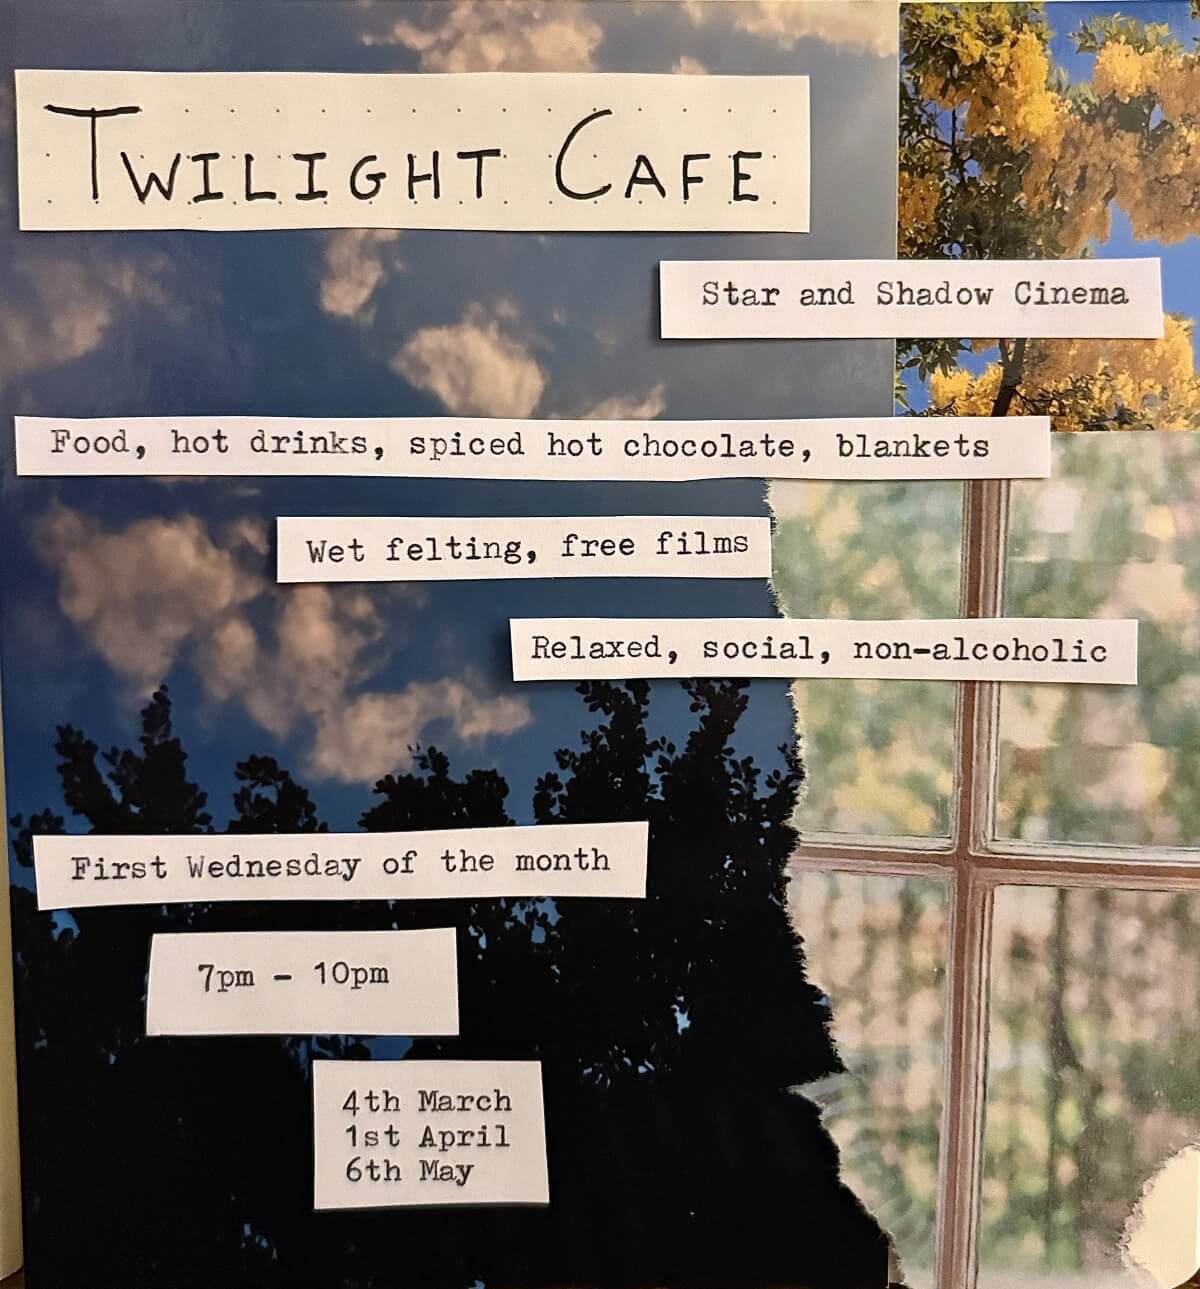 TWILIGHT CAFE
Star and Shadow Cinema
Food, hot drinks, spiced hot chocolate, blankets
Wet felting, free films
Relaxed, social, non-alcoholic
First Wednesday of the month
7pm - 10pm
4th March
1st April
6th May